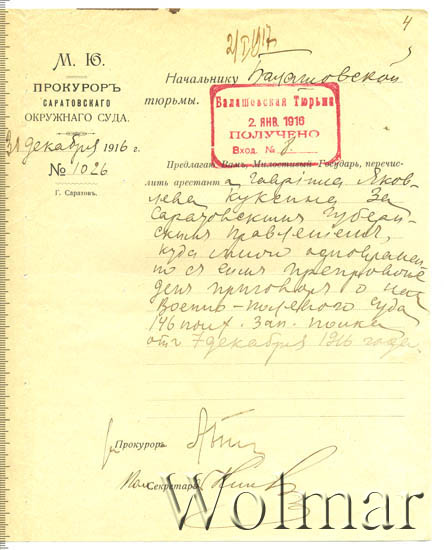 4
2/I 1917
М. Ю.
ПРОКУРОРЪ
САРАТОВСКАГО
ОКРУЖНАГО СУДА.
31 декабря 1916 г.
№ 1026
Г. Саратовъ.
Начальнику Балашовской
тюрьмы.
Балашовская Тюрьма
2. ЯНВ. 1916
ПОЛУЧЕНО
Вход. № 8.
Предлагаю Вамъ, Милостивый Государь, перечис-
лить арестанта Гавріила Яков-
лева Куксина за
Саратовскимъ Губерн-
скимъ Правленіем,
куда мною одноврамен
но съ симъ препровож
ден приговоръ о нем
Военно-полевого суда
146 пѣх. Зап. полка
отъ 7 декабря 1916 года
Прокуроръ
Пом. Секретарь
Wolmar